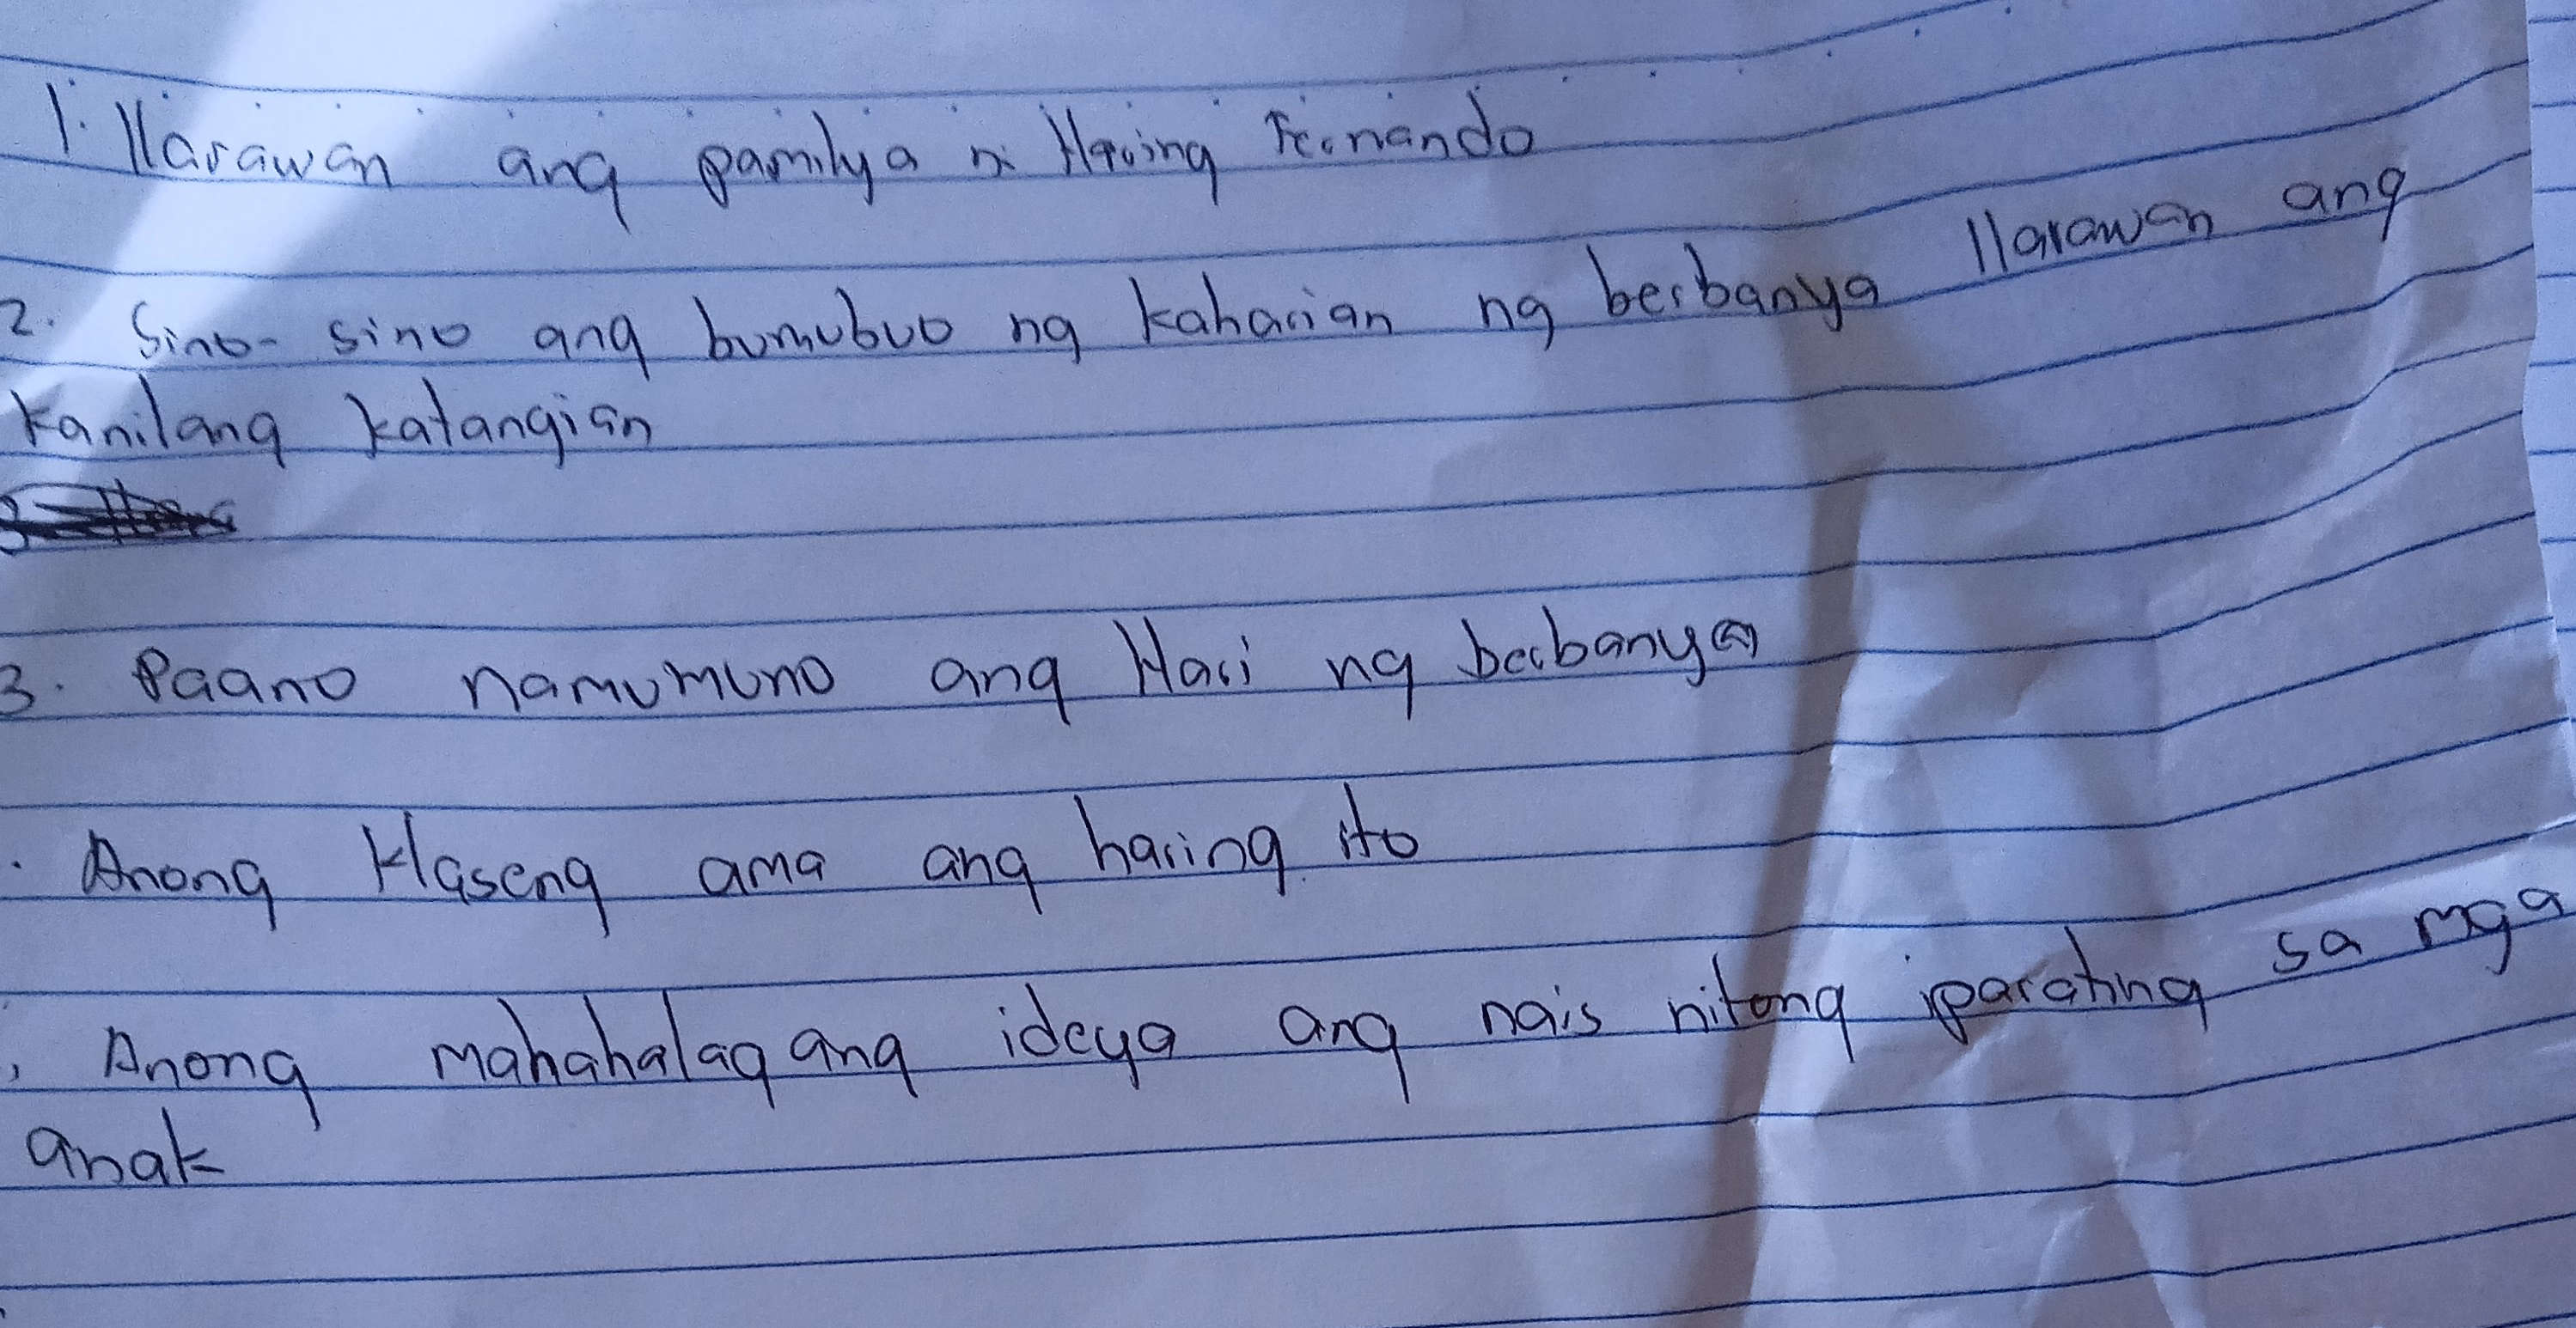 1. Ilarawan ang pamilya ni Haring Fernando
2. Sino-sino ang bumubuo ng kaharian ng berbanya Ilarawan ang
kanilang katangian
3. Paano namumuno ang Hari ng berbanya
. Anong klaseng ama ang haring ito
. Anong mahahalagang ideya ang nais nitong iparating sa mga
anak